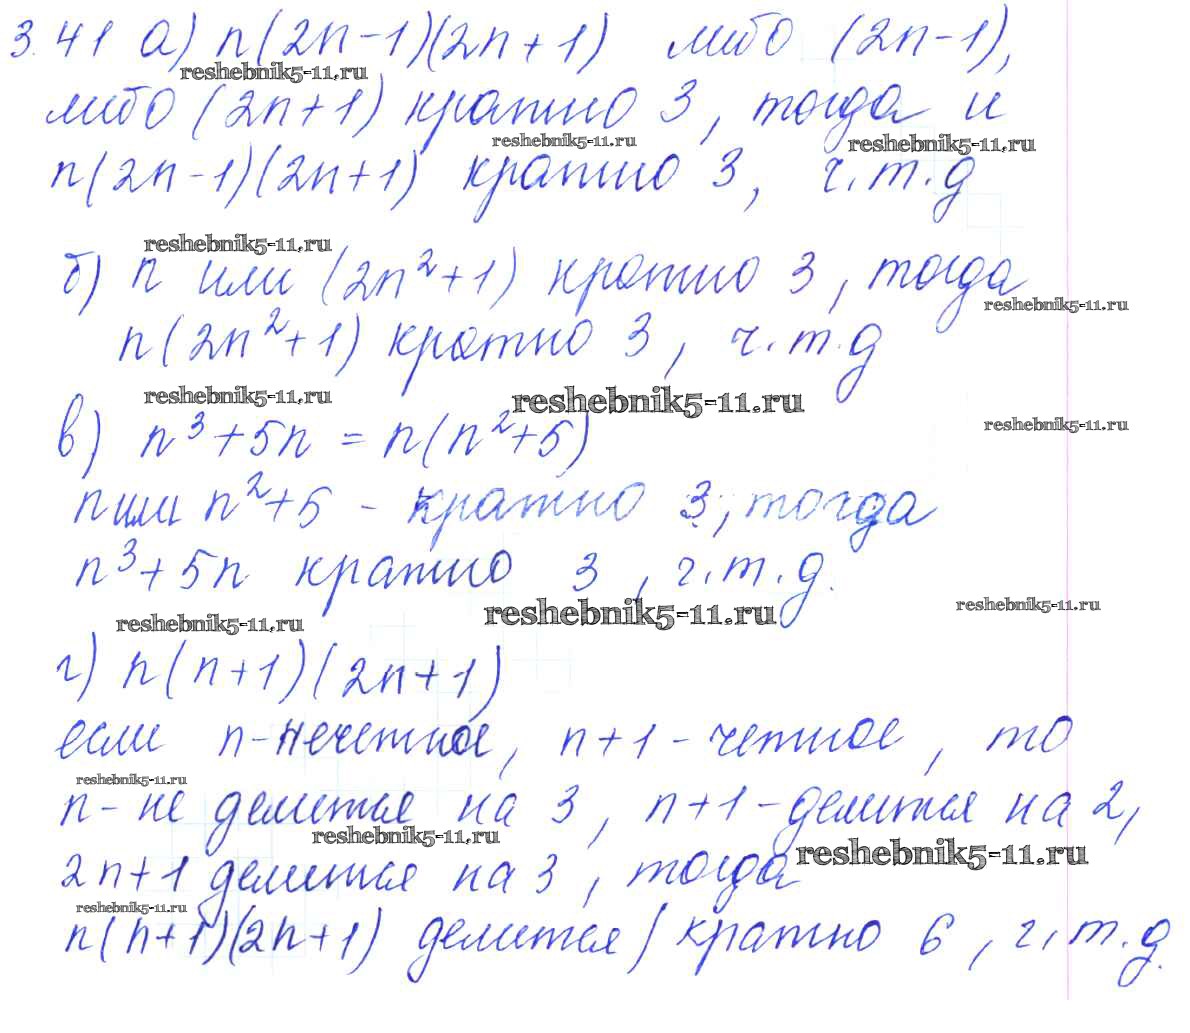 3.41 а) n(2n-1)(2n+1) либо (2n-1),
reshebnik5-11.ru
либо (2n+1) кратно 3, тогда и
reshebnik5-11.ru reshebnik5-11.ru
n(2n-1)(2n+1) кратно 3, ч.т.д
reshebnik5-11.ru
б) n или (2n²+1) кратно 3, тогда
reshebnik5-11.ru
n(2n²+1) кратно 3, ч.т.д
reshebnik5-11.ru reshebnik5-11.ru
reshebnik5-11.ru
в) n³+5n = n(n²+5)
n или n²+5 - кратно 3, тогда
n³+5n кратно 3, ч.т.д.
reshebnik5-11.ru reshebnik5-11.ru reshebnik5-11.ru
г) n(n+1)(2n+1)
если n-нечетное, n+1-четное, то
reshebnik5-11.ru
n- не делится на 3, n+1-делится на 2,
reshebnik5-11.ru reshebnik5-11.ru
2n+1 делится на 3, тогда
reshebnik5-11.ru
n(n+1)(2n+1) делится/кратно 6, ч.т.д.